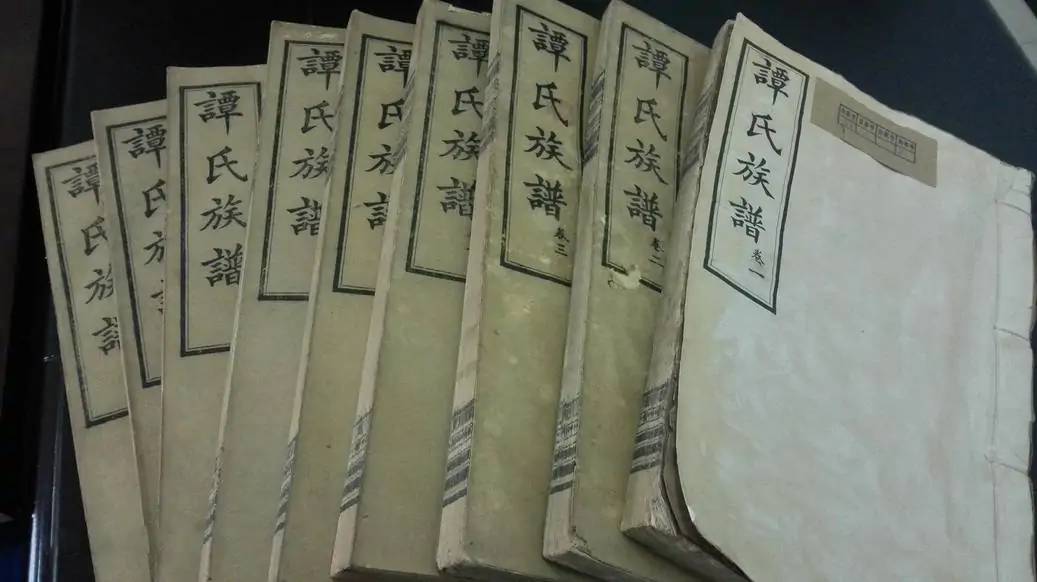 譚氏族譜 卷一
譚氏族譜 卷二
譚氏族譜 卷三
譚氏族譜
譚氏族譜
譚氏族譜
譚氏族譜
譚氏族譜
譚氏族譜